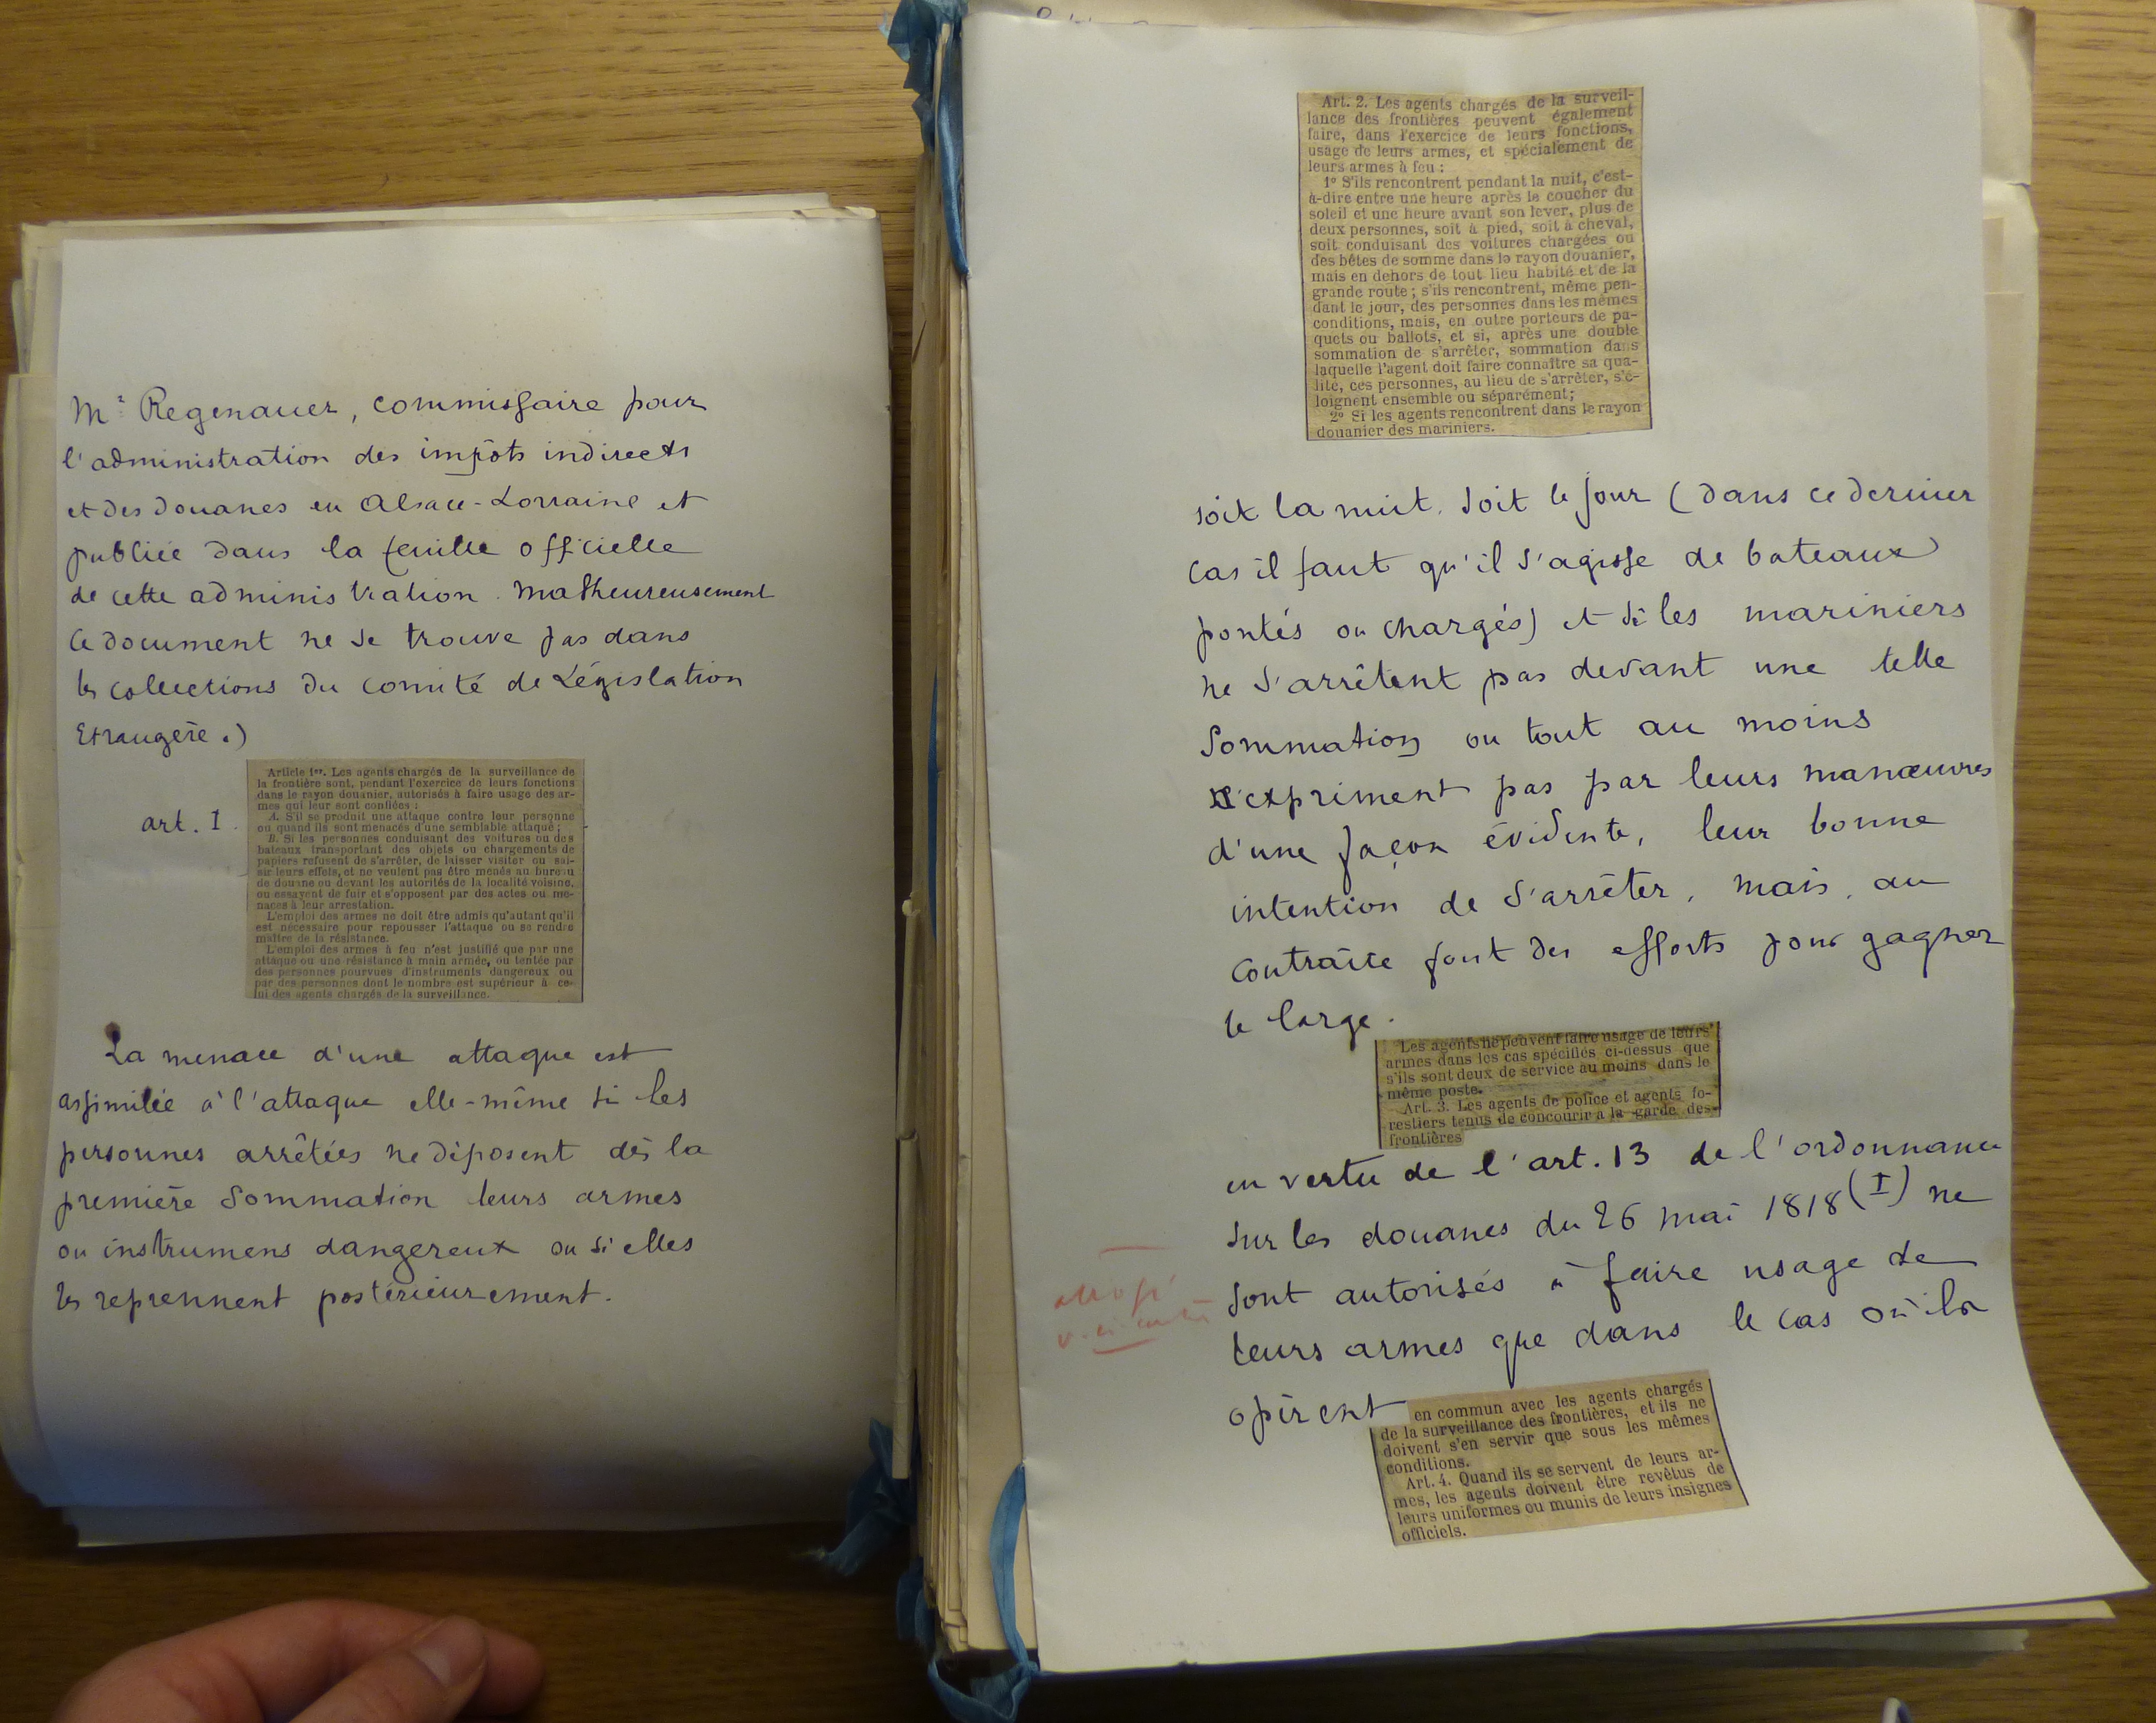 Mr Regenauer, commissaire pour
l'administration des impôts indirects
et des douanes en Alsace-Lorraine et
publiée dans la feuille officielle
de cette administration. Malheureusement
ce document ne se trouve pas dans
les collections du comité de Législation
Etrangère.)
art. 1.
Article 1er. Les agents chargés de la surveillance de
la frontière sont, pendant l'exercice de leurs fonctions
dans le rayon douanier, autorisés à faire usage des ar-
mes qui leur sont confiées :
A. S'il se produit une attaque contre leur personne
ou quand ils sont menacés d'une semblable attaque;
B. Si les personnes conduisant des voitures ou des
bateaux transportant des objets ou chargements de
papiers refusent de s'arrêter, de laisser visiter ou sai-
sir leurs effets, et ne veulent pas être menés au bureau
de douane ou devant les autorités de la localité voisine,
ou essayent de fuir et s'opposent par des actes ou me-
naces à leur arrestation.
L'emploi des armes ne doit être admis qu'autant qu'il
est nécessaire pour repousser l'attaque ou se rendre
maître de la résistance.
L'emploi des armes à feu n'est justifié que par une
attaque ou une résistance à main armée, ou tentée par
des personnes pourvues d'instruments dangereux ou
par des personnes dont le nombre est supérieur à ce-
lui des agents chargés de la surveillance.
La menace d'une attaque est
assimilée à l'attaque elle-même si les
personnes arrêtées ne déposent dès la
première sommation leurs armes
ou instrumens dangereux ou si elles
les reprennent postérieurement.
Art. 2. Les agents chargés de la surveil-
lance des frontières peuvent également
faire, dans l'exercice de leurs fonctions,
usage de leurs armes, et spécialement de
leurs armes à feu :
1° S'ils rencontrent pendant la nuit, c'est-
à-dire entre une heure après le coucher du
soleil et une heure avant son lever, plus de
deux personnes, soit à pied, soit à cheval,
soit conduisant des voitures chargées ou
des bêtes de somme dans le rayon douanier,
mais en dehors de tout lieu habité et de la
grande route ; s'ils rencontrent, même pen-
dant le jour, des personnes dans les mêmes
conditions, mais, en outre porteurs de pa-
quets ou ballots, et si, après une double
sommation de s'arrêter, sommation dans
laquelle l'agent doit faire connaître sa qua-
lité, ces personnes, au lieu de s'arrêter, s'é-
loignent ensemble ou séparément;
2° Si les agents rencontrent dans le rayon
douanier des mariniers.
soit la nuit, soit le jour (dans ce dernier
cas il faut qu'il s'agisse de bateaux
pontés ou chargés) et si les mariniers
ne s'arrêtent pas devant une telle
sommation ou tout au moins
n'expriment pas par leurs manœuvres
d'une façon évidente, leur bonne
intention de s'arrêter, mais, au
contraire font des efforts pour gagner
le large.
Les agents ne peuvent faire usage de leurs
armes dans les cas spécifiés ci-dessus que
s'ils sont deux de service au moins dans le
même poste.
Art. 3. Les agents de police et agents fo-
restiers tenus de concourir à la garde des
frontières
en vertu de l'art. 13 de l'ordonnance
sur les douanes du 26 mai 1818 (I) ne
sont autorisés à faire usage de
leurs armes que dans le cas où ils
opèrent
en commun avec les agents chargés
de la surveillance des frontières, et ils ne
doivent s'en servir que sous les mêmes
conditions.
Art. 4. Quand ils se servent de leurs ar-
mes, les agents doivent être revêtus de
leurs uniformes ou munis de leurs insignes
officiels.